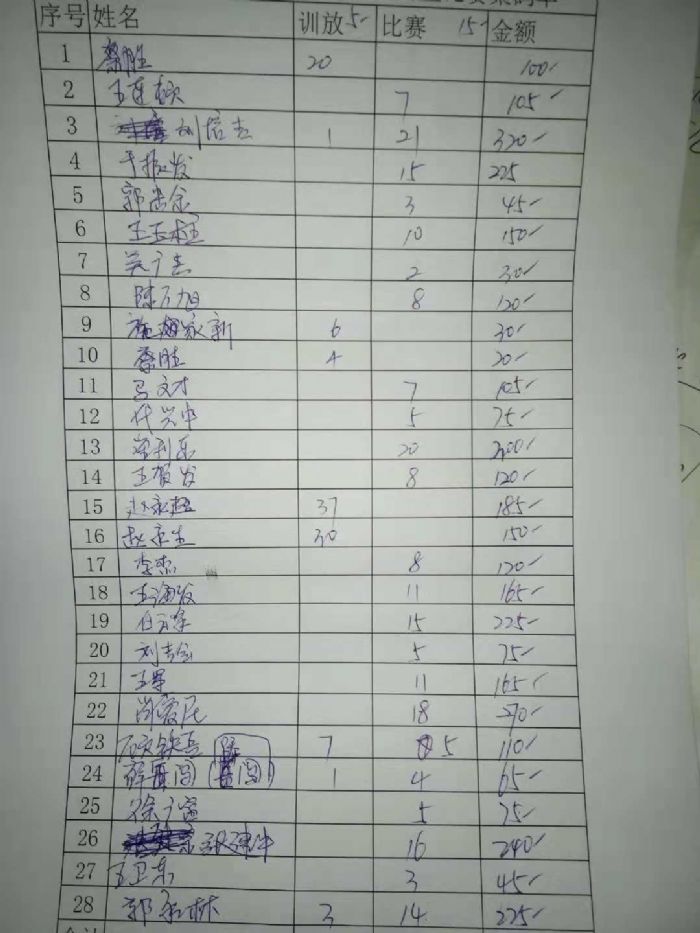 序号 姓名 训放 5- 比赛 15- 金额
1 蔡胜 20 100-
2 王连顺 7 105-
3 刘信志 1 21 320-
4 于振发 15 225
5 郭忠余 3 45-
6 王玉柱 10 150-
7 吴广志 2 30-
8 陈万旭 8 120-
9 家新 6 30-
10 蔡胜 4 20-
11 马文才 7 105-
12 代兴中 5 75-
13 常利东 20 300-
14 王贺发 8 120-
15 赵永超 37 185-
16 赵京生 30 150-
17 李杰 8 120-
18 王海发 11 165-
19 15 225-
20 刘志会 5 75-
21 王军 11 165-
22 18 270-
23 顾铁兵 7 5 110-
24 1 4 65-
25 徐广富 5 75-
26 16 240-
27 王卫东 3 45-
28 郭永林 3 14 225-